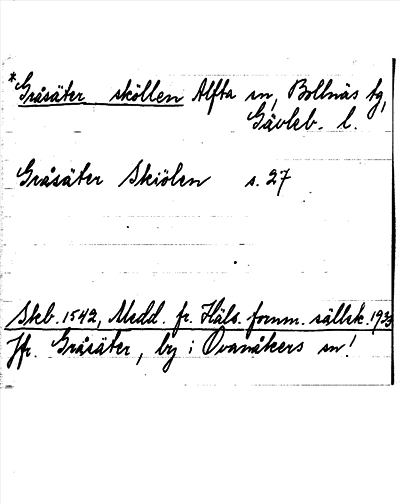 *Gråsäter sköllen Alfta sn, Bollnäs tg,
Gävleb. l.
Gråsäter Skiölen s. 27
Skb. 1542, Medd. fr. Häls. fornm. sällsk. 1933
Jfr. Gråsäter, by i Ovanåkers sn!